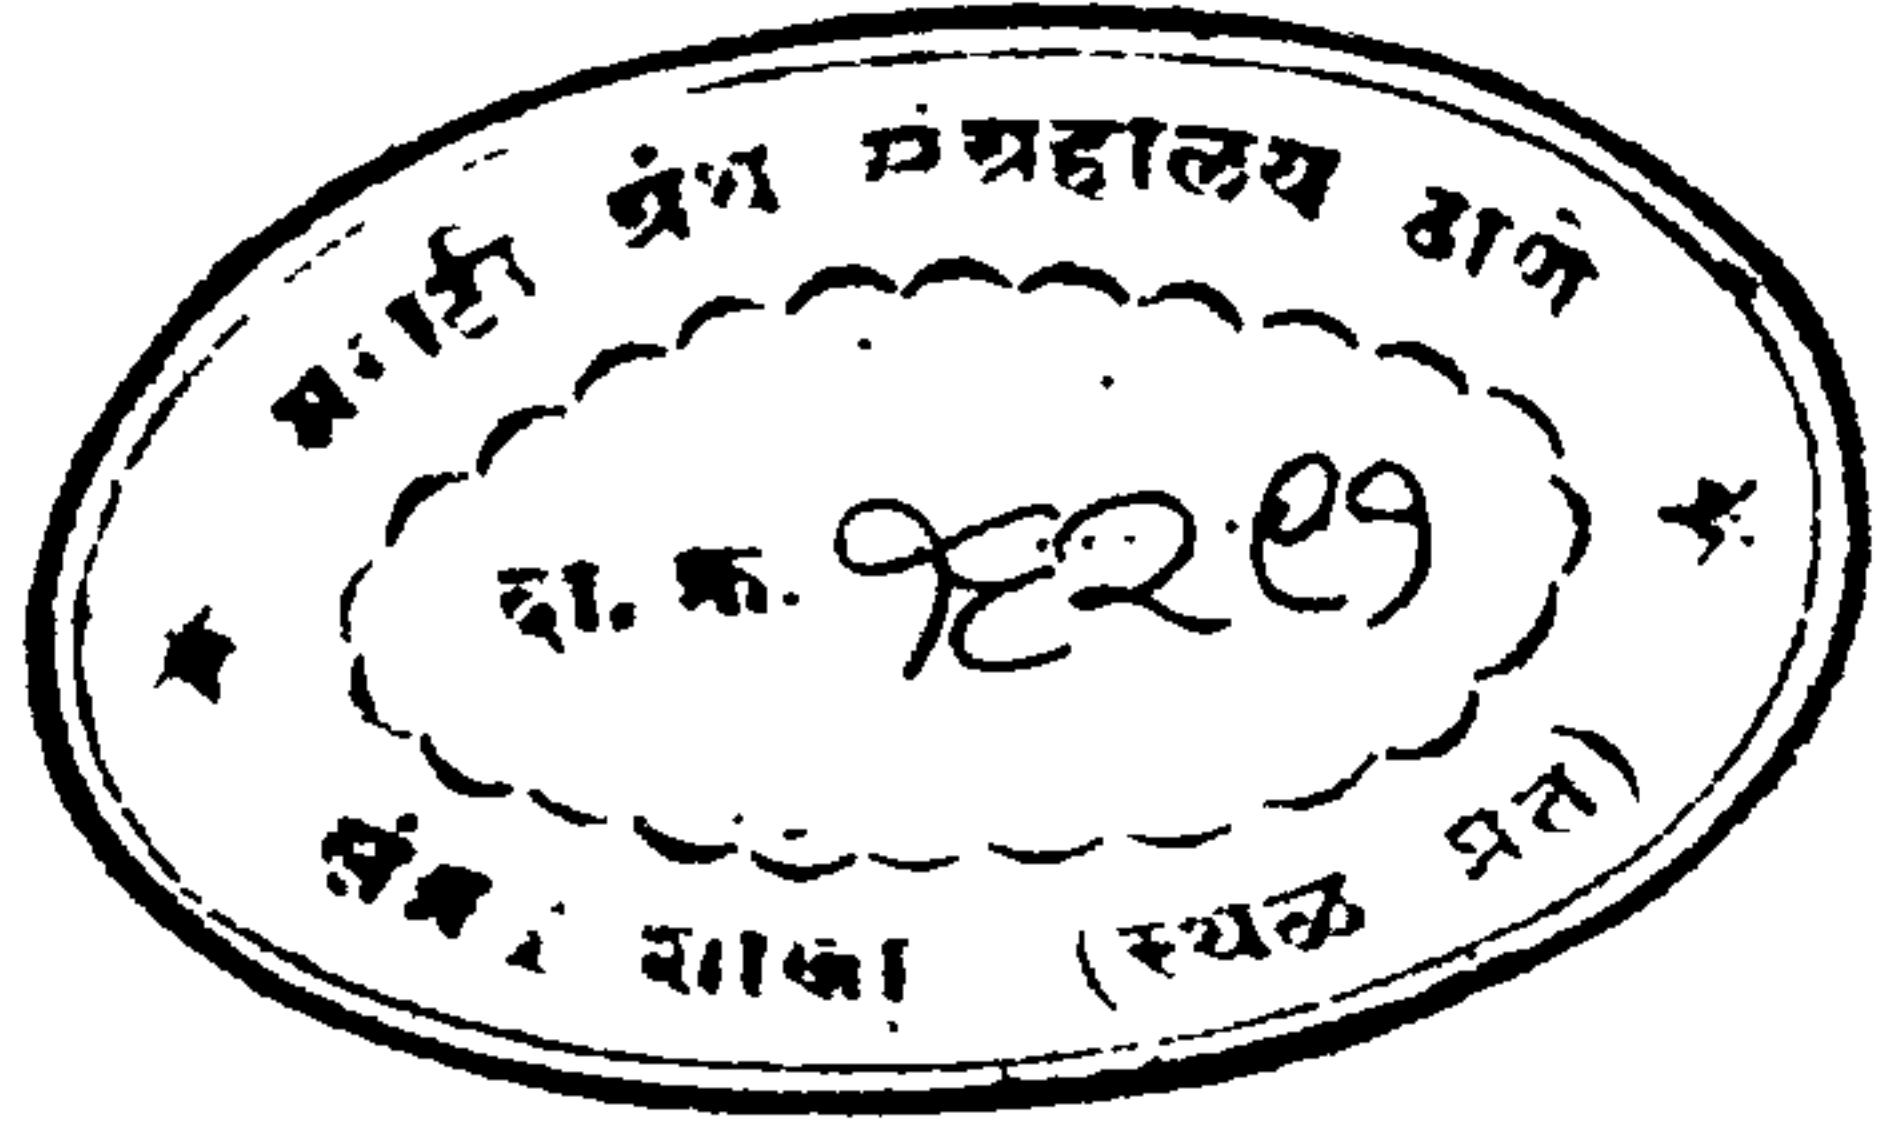 मराठी ग्रंथ संग्रहालय ठाणे
दा. क्र. १६२८१
शाखा (स्थळ प्रत)